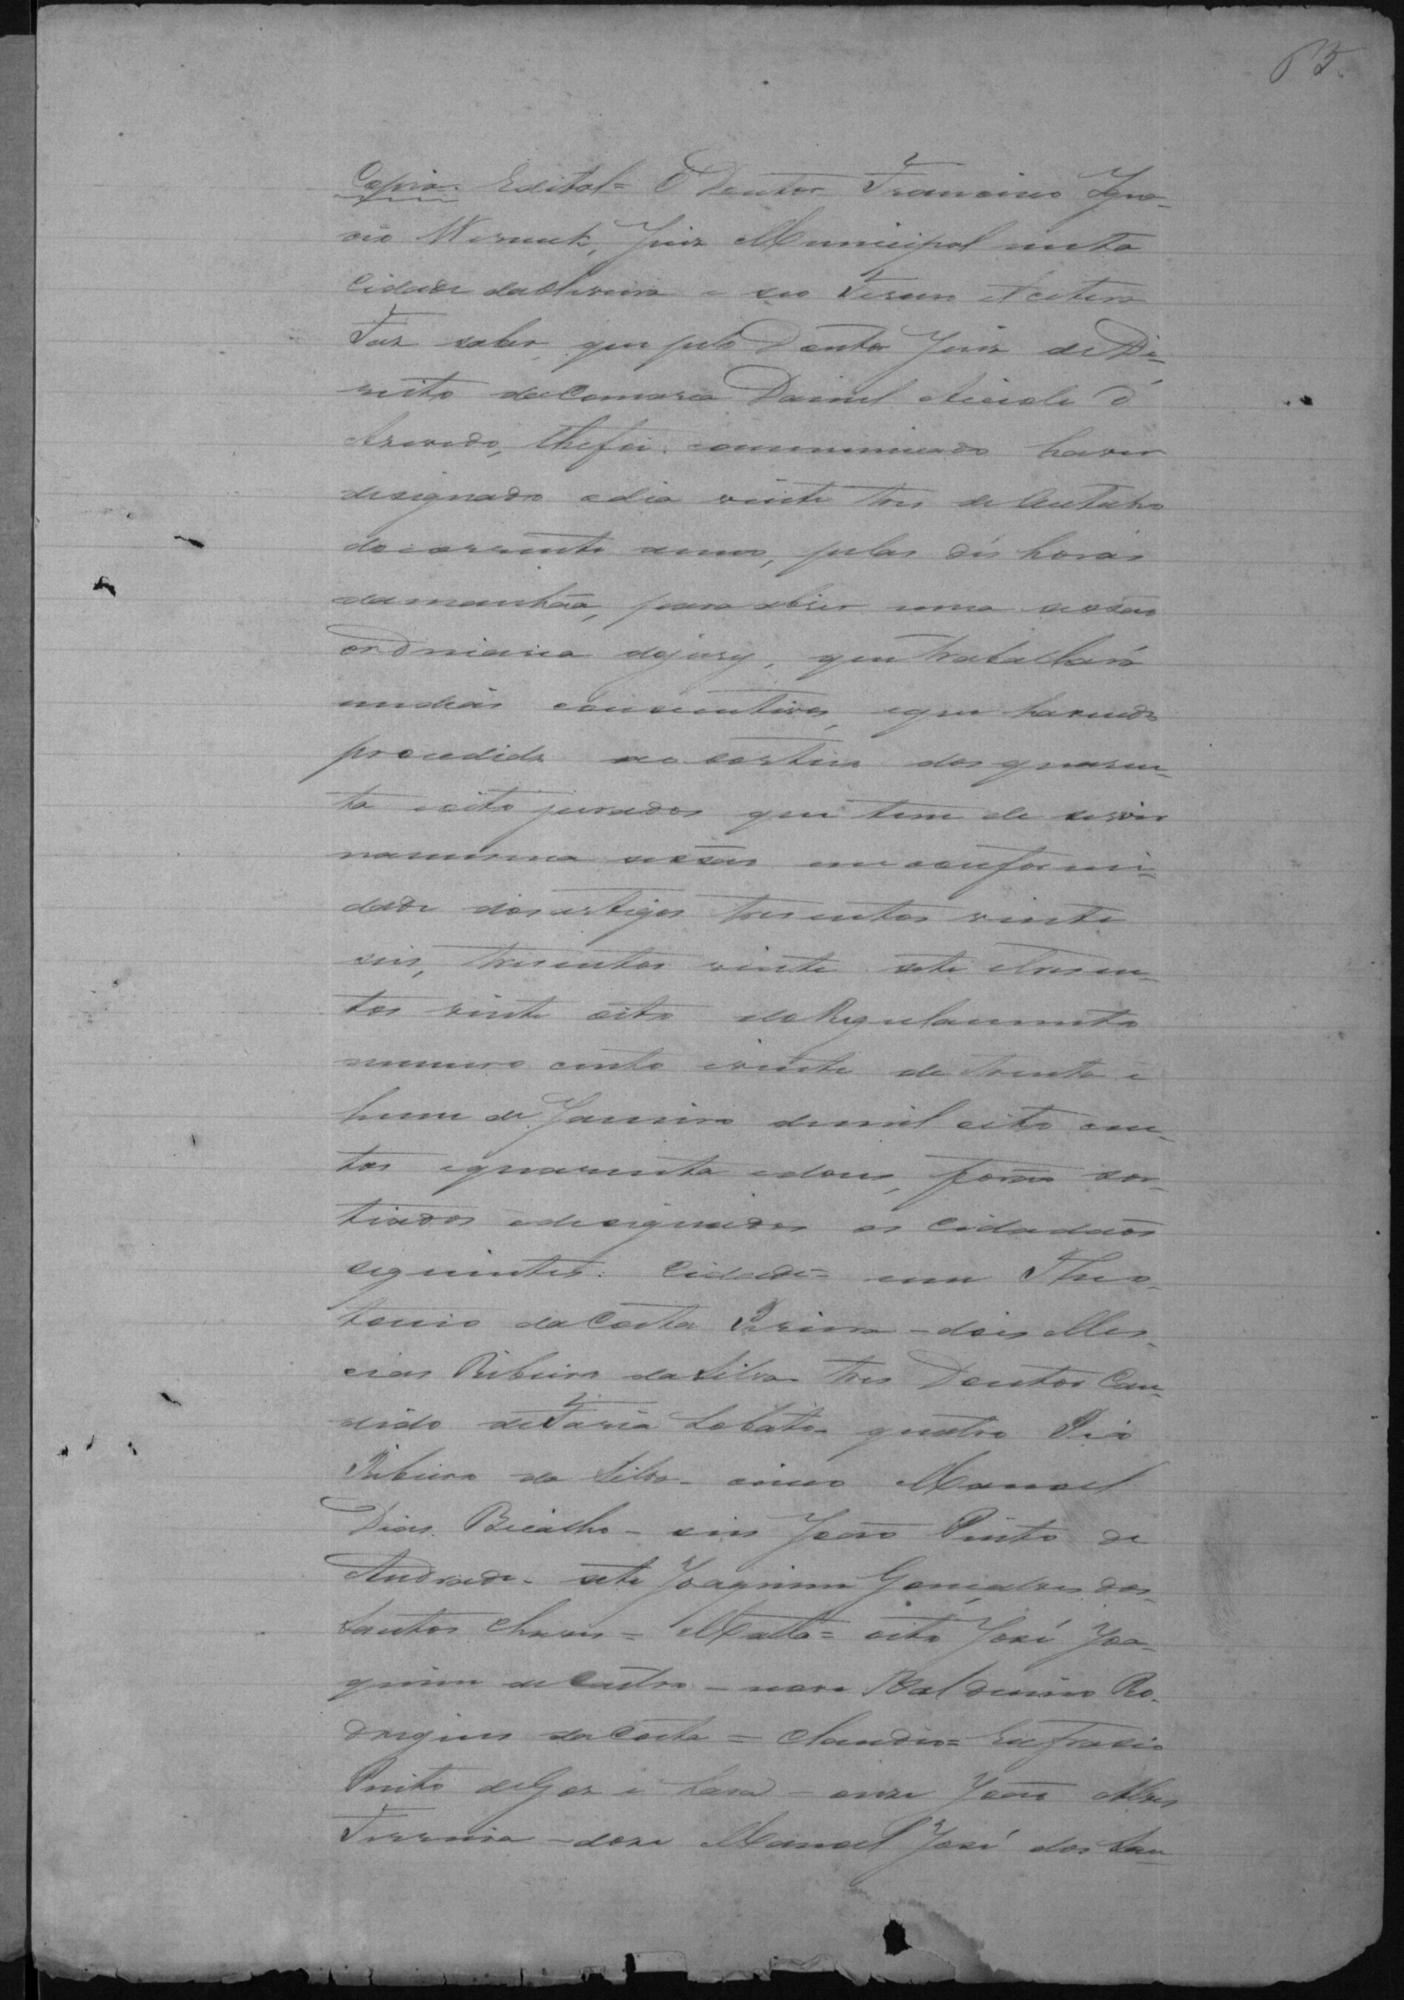 63.
Copia. Edital = O Doutor Francisco Igna-
cio Werneck, Juiz Municipal nesta
Cidade da Oliveira e seo Termo Etcetera
Faz saber, que pelo Doutor Juiz de Di-
reito da Comarca Daniel Accioli d'
Azevedo, lhe foi communicado haver
designado o dia vinte tres de Outubro
do corrente anno, pelas dés horas
da manhãa, para abrir uma sessão
ordinaria do jury, que trabalhará
em dias consecutivos, e que havendo
procedido ao sorteio dos quaren-
ta e oito jurados que tem de servir
na mesma sessão em conformi-
dade dos artigos tresentos vinte
seis, tresentos vinte sete e tresen-
tos vinte oito do Regulamento
numero cento e vinte de trinta e
hum de Janeiro de mil oito cen-
tos e quarenta e dous, forão sor-
tiados e designados os Cidadãos
seguintes: Cidade = um Theo-
tonio da Costa Pereira - dois Mes-
cias Ribeiro da Silva - tres Doutor Can-
dido de Faria Lobato - quatro Pio
Ribeiro da Silva - cinco Manoel
Dias Bicalho - seis João Pinto de
Andrade - sete Joaquim Gonçalves dos
Santos Chaves = Matta = oito José Joa-
quim de Castro - nove Balduino Ro-
drigues da Costa = Claudio = Eufrasio
Pinto de Goz e Lara - onze João Alves
Ferreira - doze Manoel José dos San-